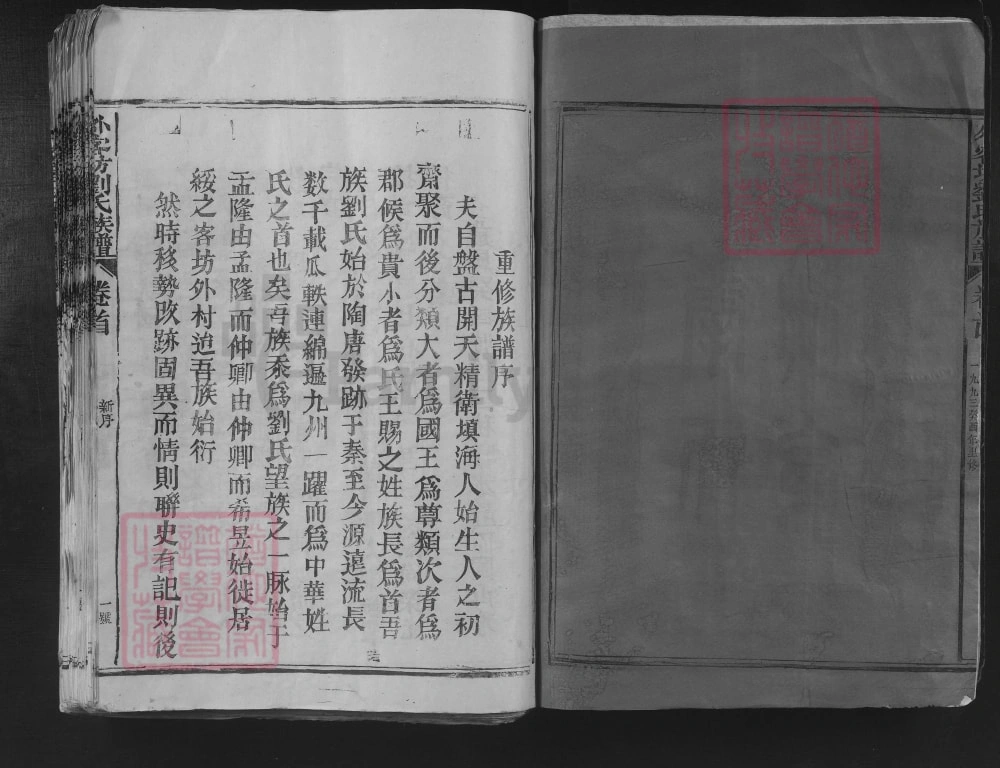 一九九三癸酉年五修
重修族譜序
夫自盤古開天精衛填海人始生人之初
齋聚而後分類大者為國王為尊類次者為
郡候為貴小者為氏王賜之姓族長為首吾
族劉氏始於陶唐發跡于秦至今源遠流長
数千載瓜軼連綿遍九州一躍而為中華姓
氏之首也矣吾族忝為劉氏望族之一脉始于
孟隆由孟隆而仲卿由仲卿而希昱始徙居
綏之客坊外村迨吾族始衍
然時移勢改跡固異而情則聯史有記則後
外字坊劉氏族譜 卷首 新序 一號